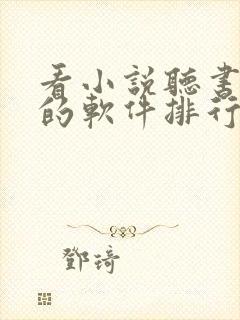 看小説聽書
的軟件排行
鄧琦